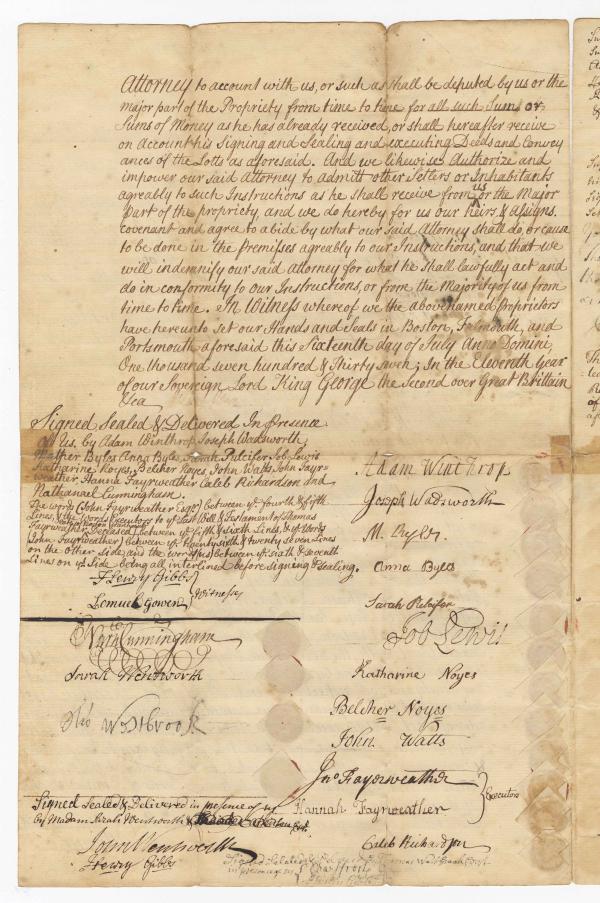 Attorney to account with us, or such as shall be deputed by us or the
major part of the Propriety from time to time for all such Sums or
Sums of Money as he has already received, or shall hereafter receive
on Account his Signing and Sealing and executing Deeds and Convey
ances of the Lotts as aforesaid. And we likewise Authorize and
impower our said Attorney to admitt other Setlers or Inhabitants
agreably to such Instructions as he Shall receive from us or the Major
part of the propriety, and we do hereby for us our heirs, & assigns.
covenant and agree to abide by what our said Attorney shall do, or cause
to be done in the Premisses agreably to our Instructions, and that we
will indemnify our said attorney for what he Shall lawfully act and
do in conformity to our Instructions, or from the Majority of us from
time to time. In Witness whereof we the abovenamed Proprietors
have hereunto set our Hands and Seals in Boston, Falmouth, and
Portsmouth aforesaid this Sixteenth day of July Anno Domini,
One thousand seven hundred & Thirty seven; In the Eleventh Year
of our Sovereign Lord King George the Second over Great Brittain
&ca
Signed Sealed & Delivered In Presence
of Us, by Adam Winthrop Joseph Wadsworth
Mather Byles Anna Byles, Sarah Pulcifer Job Lewis
Katharine Noyes, Belcher Noyes, John Watts, John Fayr-
weather, Hanna Fayrweather Caleb Richardson and
Nathanael Cunningham.
The words (John Fayrweather Esqr) between ye fourth & fifth
Lines, & the Words Executors to ye Last Will & Testament of Thomas
Fayrweather Deceased) between ye fifth & sixth Lines, & ye Words
John Fayrweather) Between ye Twenty sixth & twenty seven Lines
on the other side, and the word (us) between ye sixth & seventh
Lines on ye Side being all interlined before signing & Sealing.
Henry Gibbs
Lemuel Gowen } Witnesses
Adam Winthrop
Joseph Wadsworth
M. Byles.
Anna Byles
Sarah Pulcifer
Job Lewis
Katharine Noyes
Belcher Noyes
John Watts
Jno Fayerweather
Hannah Fayrweather } Executors
Caleb Richardson
Nath Cunningham
Sarah Wentworth
Tho Westbrook
Signed Sealed & Delivered in presence of us
by Madam Sarah Wentworth &
John Wentworth
Henry Gibbs